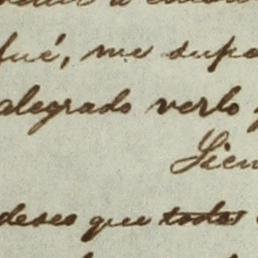 fué, me supo
alegrado verlo
Sien
deseo que todas